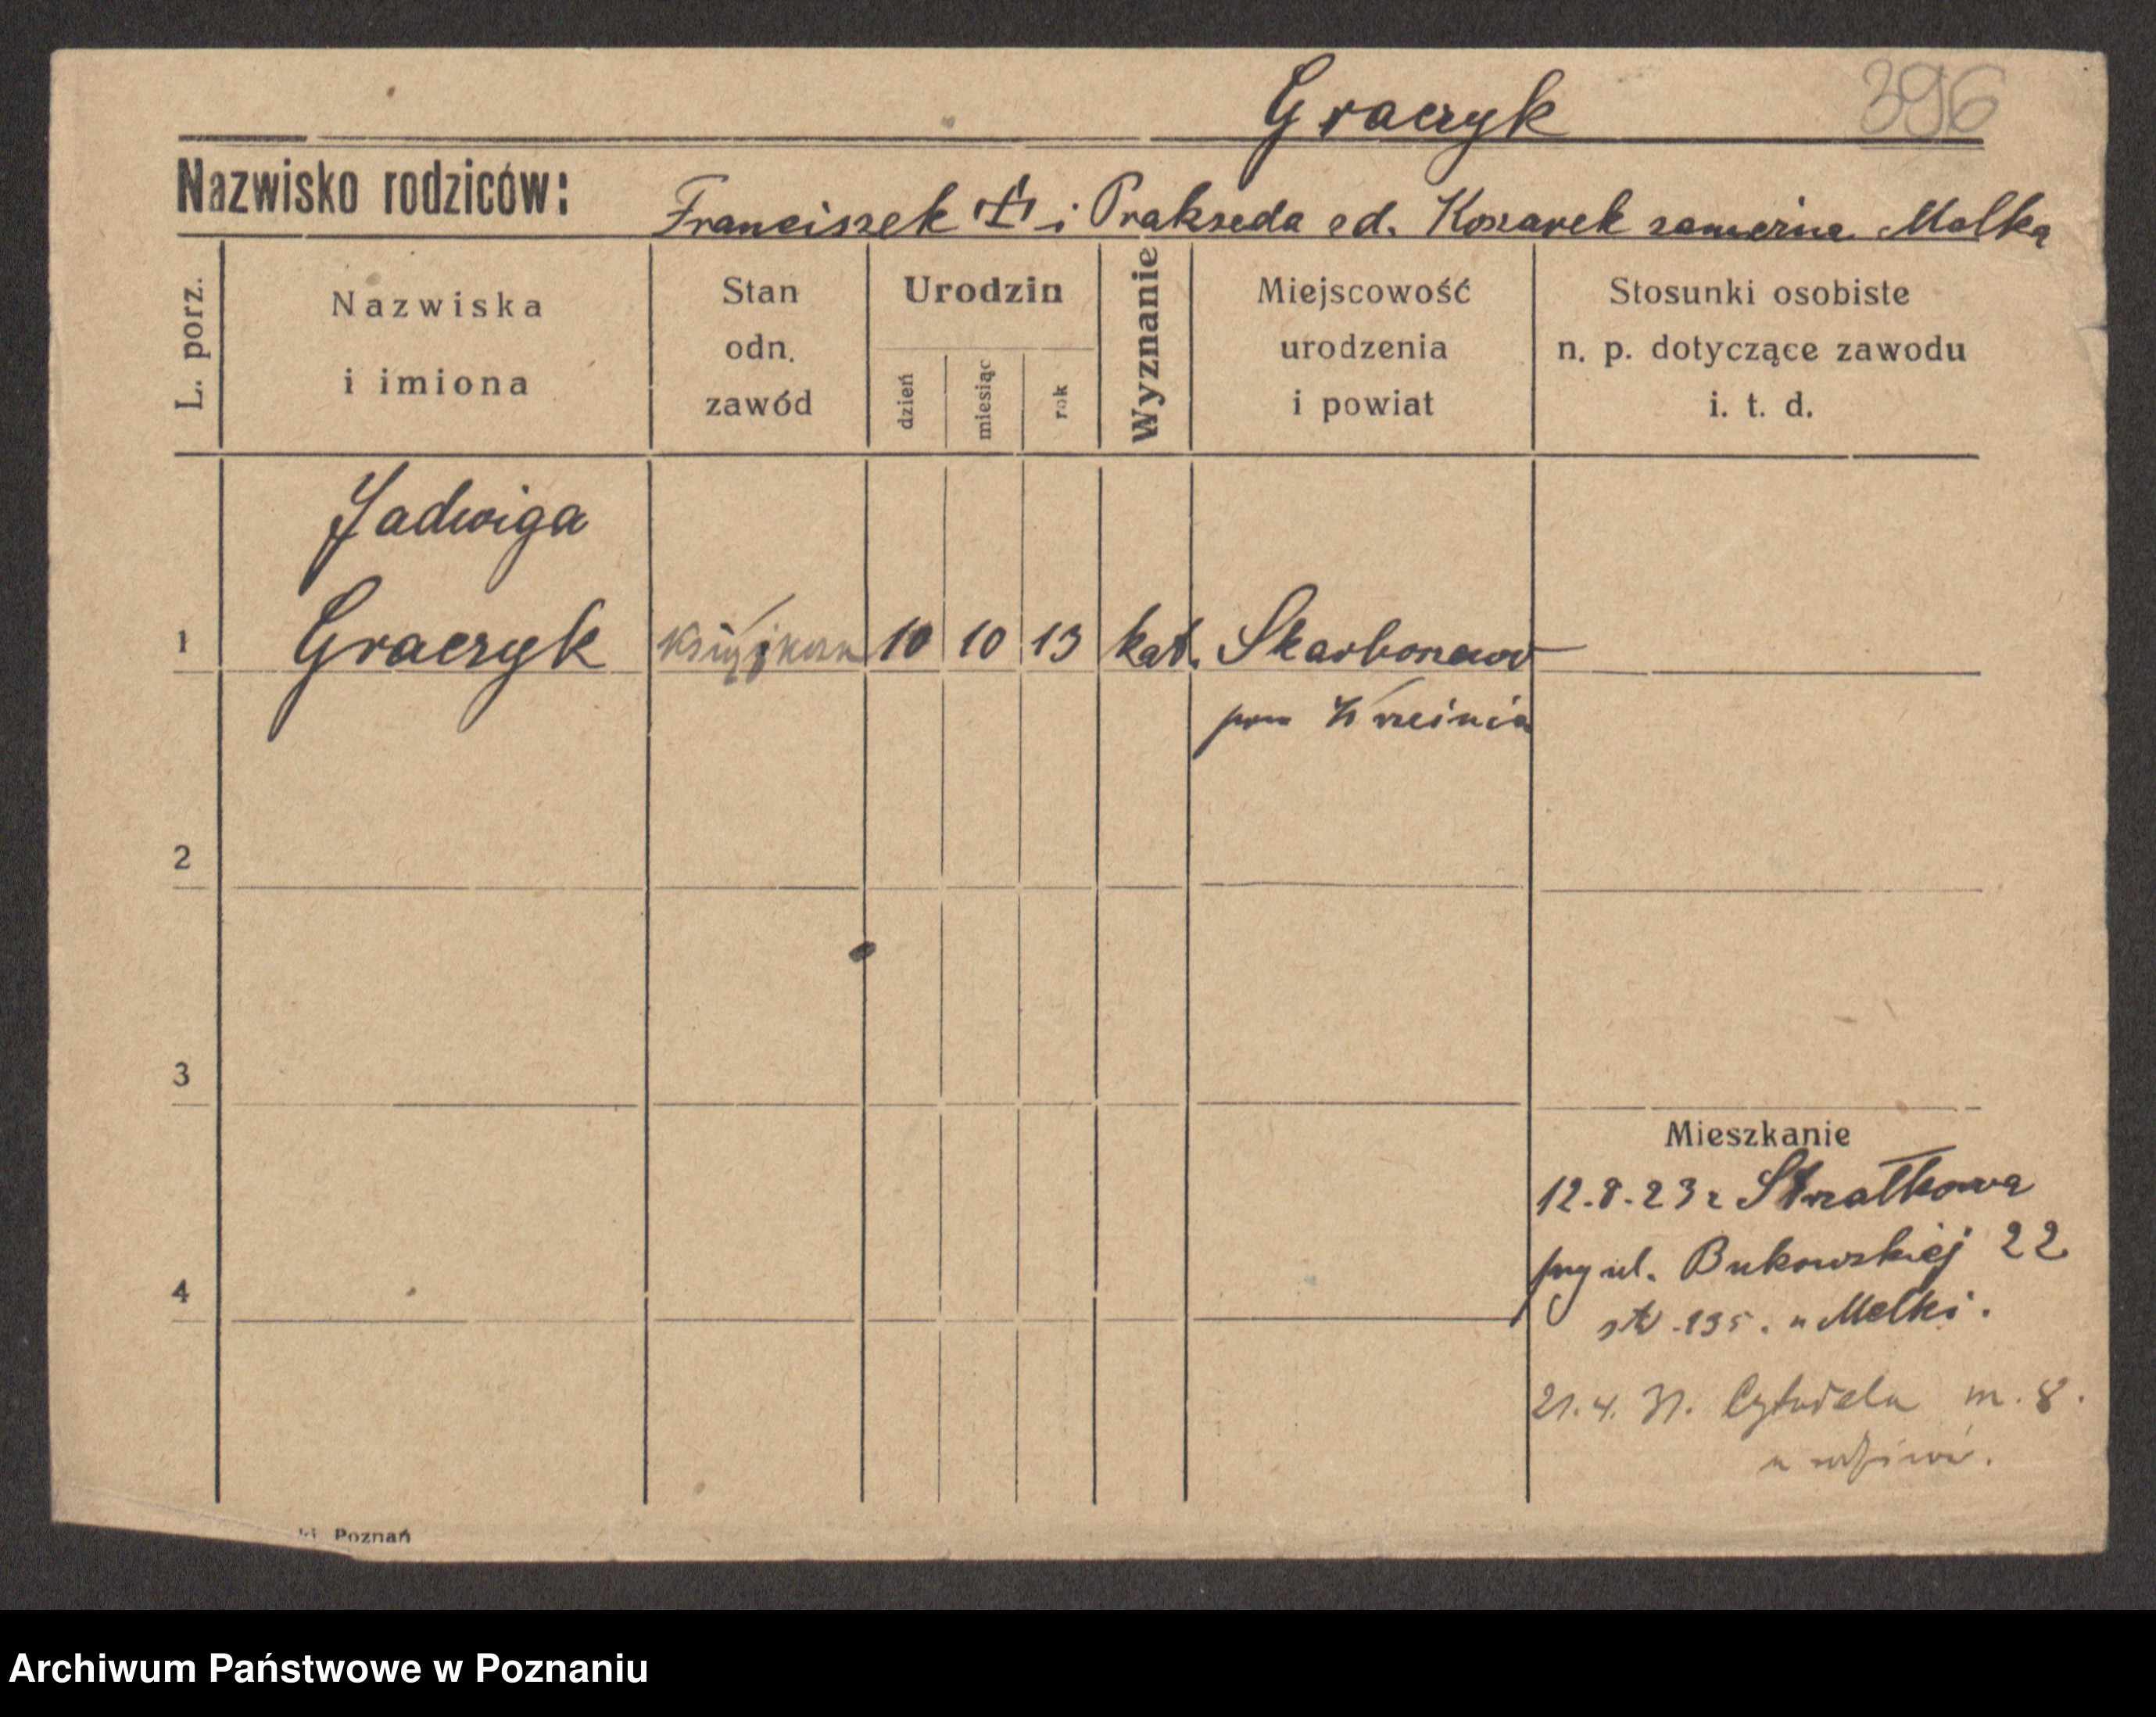 Graczyk 396
Nazwisko rodziców:
Franciszek i Prakseda zd. Koszarek zamężna Malka
L. porz.
Nazwiska
i imiona
Stan
odn.
zawód
Urodzin
dzień
miesiąc
rok
Wyznanie
Miejscowość
urodzenia
i powiat
Stosunki osobiste
n. p. dotyczące zawodu
i. t. d.
Jadwiga
1 Graczyk 10 10 13 kat. Skarboszewo
pow Września
2
3
4
Mieszkanie
12.8.23 z Strzałkowa
przy ul. Bukowskiej 22
u Malki.
21.4.31. Cytadela m. 8.
u rodziców.
ki Poznań
Archiwum Państwowe w Poznaniu